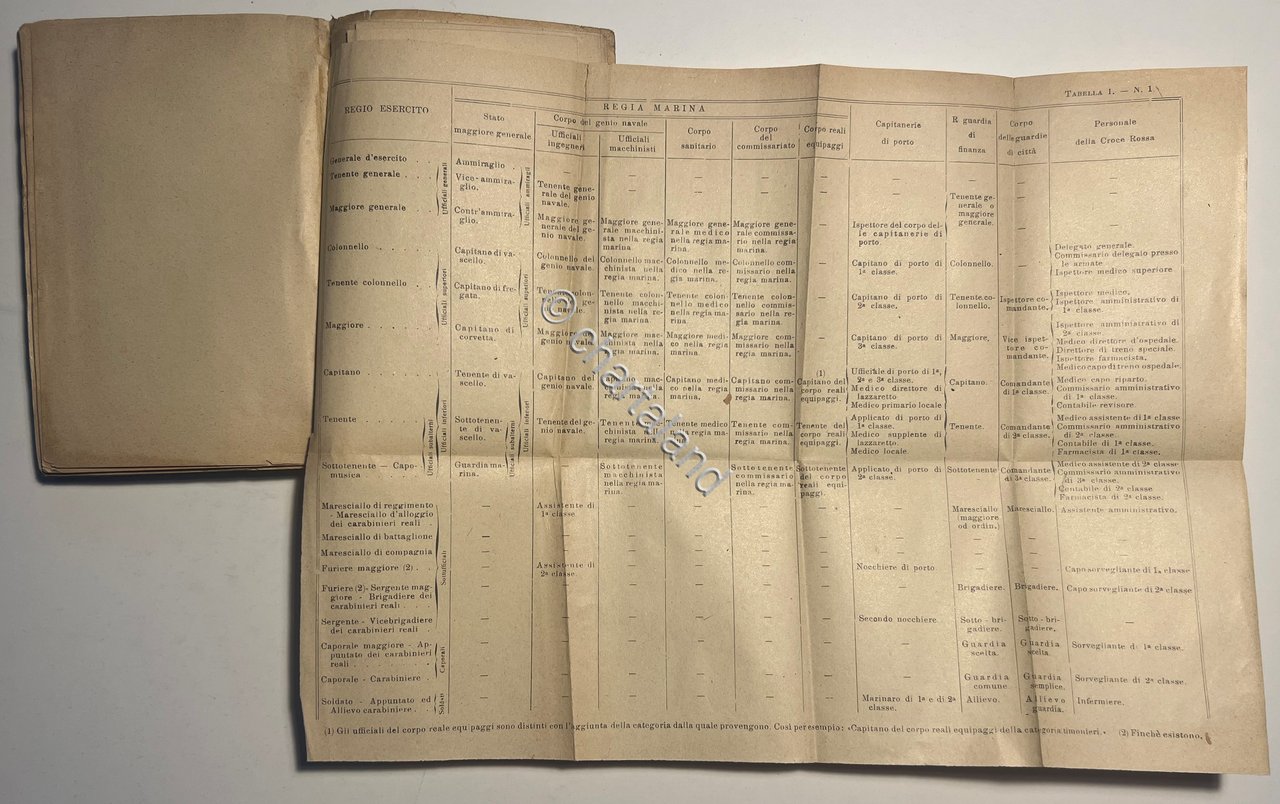 TABELLA 1. — N. 1
REGIO ESERCITO
REGIA MARINA
Stato
maggiore generale
Corpo del genio navale
Ufficiali
ingegneri
Ufficiali
macchinisti
Corpo
sanitario
Corpo
del
commissariato
Corpo reali
equipaggi
Capitanerie
di porto
R guardia
di
finanza
Corpo
delle guardie
di città
Personale
della Croce Rossa
Generale d'esercito
Ammiraglio.
—
—
—
—
—
—
—
—
—
Tenente generale
Ufficiali generali
Vice-ammira-
glio.
Ufficiali ammiragli
Tenente gene-
rale del genio
navale.
—
—
—
—
—
Tenente ge-
nerale o
maggiore
generale.
—
—
Maggiore generale
Contr'ammira-
glio.
Maggiore ge-
nerale del ge-
nio navale.
Maggiore gene-
rale macchini-
sta nella regia
marina
Maggiore gene-
rale medico
nella regia ma-
rina.
Maggiore gene-
rale commissa-
rio nella regia
marina.
—
Ispettore del corpo del-
le capitanerie di
porto.
—
—
Colonnello
Capitano di va-
scello.
Colonnello del
genio navale.
Colonnello mac-
chinista nella
regia marina.
Colonnello me-
dico nella re-
gia marina.
Colonnello com-
missario nella
regia marina.
—
Capitano di porto di
1ª classe.
Colonnello.
—
Delegato generale.
Commissario delegato presso
le armate
Ispettore medico superiore
Tenente colonnello
Ufficiali superiori
Capitano di fre-
gata.
Ufficiali superiori
Tenente colon-
nello del ge-
nio navale.
Tenente colon-
nello macchi-
nista nella re-
gia marina.
Tenente colon-
nello medico
nella regia ma-
rina.
Tenente colon-
nello commis-
sario nella re-
gia marina.
—
Capitano di porto di
2ª classe.
Tenente co-
lonnello.
Ispettore co-
mandante.
Ispettore medico.
Ispettore amministrativo di
1ª classe.
Maggiore
Capitano di
corvetta.
Maggiore del
genio navale.
Maggiore mac-
chinista nella
regia marina.
Maggiore medi-
co nella regia
marina.
Maggiore com-
missario nella
regia marina.
—
Capitano di porto di
3ª classe.
Maggiore.
Vice ispet-
tore co-
mandante.
Ispettore amministrativo di
2ª classe.
Medico direttore d'ospedale.
Direttore di treno speciale.
Ispettore farmacista.
Medico capo di treno ospedale.
Capitano
Tenente di va-
scello.
Capitano del
genio navale.
Capitano mac-
chinista nella
regia marina.
Capitano medi-
co nella regia
marina.
Capitano com-
missario nella
regia marina.
(1)
Capitano del
corpo reali
equipaggi.
Ufficiale di porto di 1ª,
2ª e 3ª classe.
Medico direttore di
lazzaretto
Medico primario locale
Capitano.
Comandante
di 1ª classe.
Medico capo riparto.
Commissario amministrativo
di 1ª classe.
Contabile revisore.
Tenente
Ufficiali subalterni
Ufficiali inferiori
Sottotenen-
te di va-
scello.
Ufficiali subalterni
Ufficiali inferiori
Tenente del ge-
nio navale.
Tenente mac-
chinista nella
regia marina.
Tenente medico
nella regia ma-
rina.
Tenente com-
missario nella
regia marina.
Tenente del
corpo reali
equipaggi.
Applicato di porto di
1ª classe.
Medico supplente di
lazzaretto.
Medico locale.
Tenente.
Comandante
di 2ª classe.
Medico assistente di 1ª classe
Commissario amministrativo
di 2ª classe.
Contabile di 1ª classe.
Farmacista di 1ª classe.
Sottotenente — Capo-
musica
Guardia ma-
rina.
Sottotenente
macchinista
nella regia ma-
rina.
Sottotenente
commissario
nella regia ma-
rina.
Sottotenente
del corpo
reali equi-
paggi.
Applicato di porto di
2ª classe.
Sottotenente
Comandante
di 3ª classe.
Medico assistente di 2ª classe
Commissario amministrativo
di 3ª classe.
Contabile di 2ª classe
Farmacista di 2ª classe.
Maresciallo di reggimento
- Maresciallo d'alloggio
dei carabinieri reali .
—
Assistente di
1ª classe.
—
—
—
—
—
Maresciallo
(maggiore
od ordin.)
Maresciallo.
Assistente amministrativo.
Maresciallo di battaglione
Maresciallo di compagnia
Furiere maggiore (2) . .
Sottufficiali
Assistente di
2ª classe.
Nocchiere di porto
Capo sorvegliante di 1ª classe
Furiere (2) - Sergente mag-
giore - Brigadiere dei
carabinieri reali .
Brigadiere.
Brigadiere.
Capo sorvegliante di 2ª classe
Sergente - Vicebrigadiere
dei carabinieri reali .
Secondo nocchiere.
Sotto-bri-
gadiere.
Sotto-bri-
gadiere.
—
Caporale maggiore - Ap-
puntato dei carabinieri
reali .
Caporali
Guardia
scelta.
Guardia
scelta.
Sorvegliante di 1ª classe.
Caporale - Carabiniere .
Guardia
comune
Guardia
semplice.
Sorvegliante di 2ª classe.
Soldato - Appuntato ed
Allievo carabiniere .
Soldati
Marinaro di 1ª e di 2ª
classe.
Allievo.
Allievo
guardia.
Infermiere.
(1) Gli ufficiali del corpo reale equipaggi sono distinti con l'aggiunta della categoria dalla quale provengono. Così per esempio: «Capitano del corpo reali equipaggi della categoria timonieri.» (2) Finchè esistono.
© chartaland